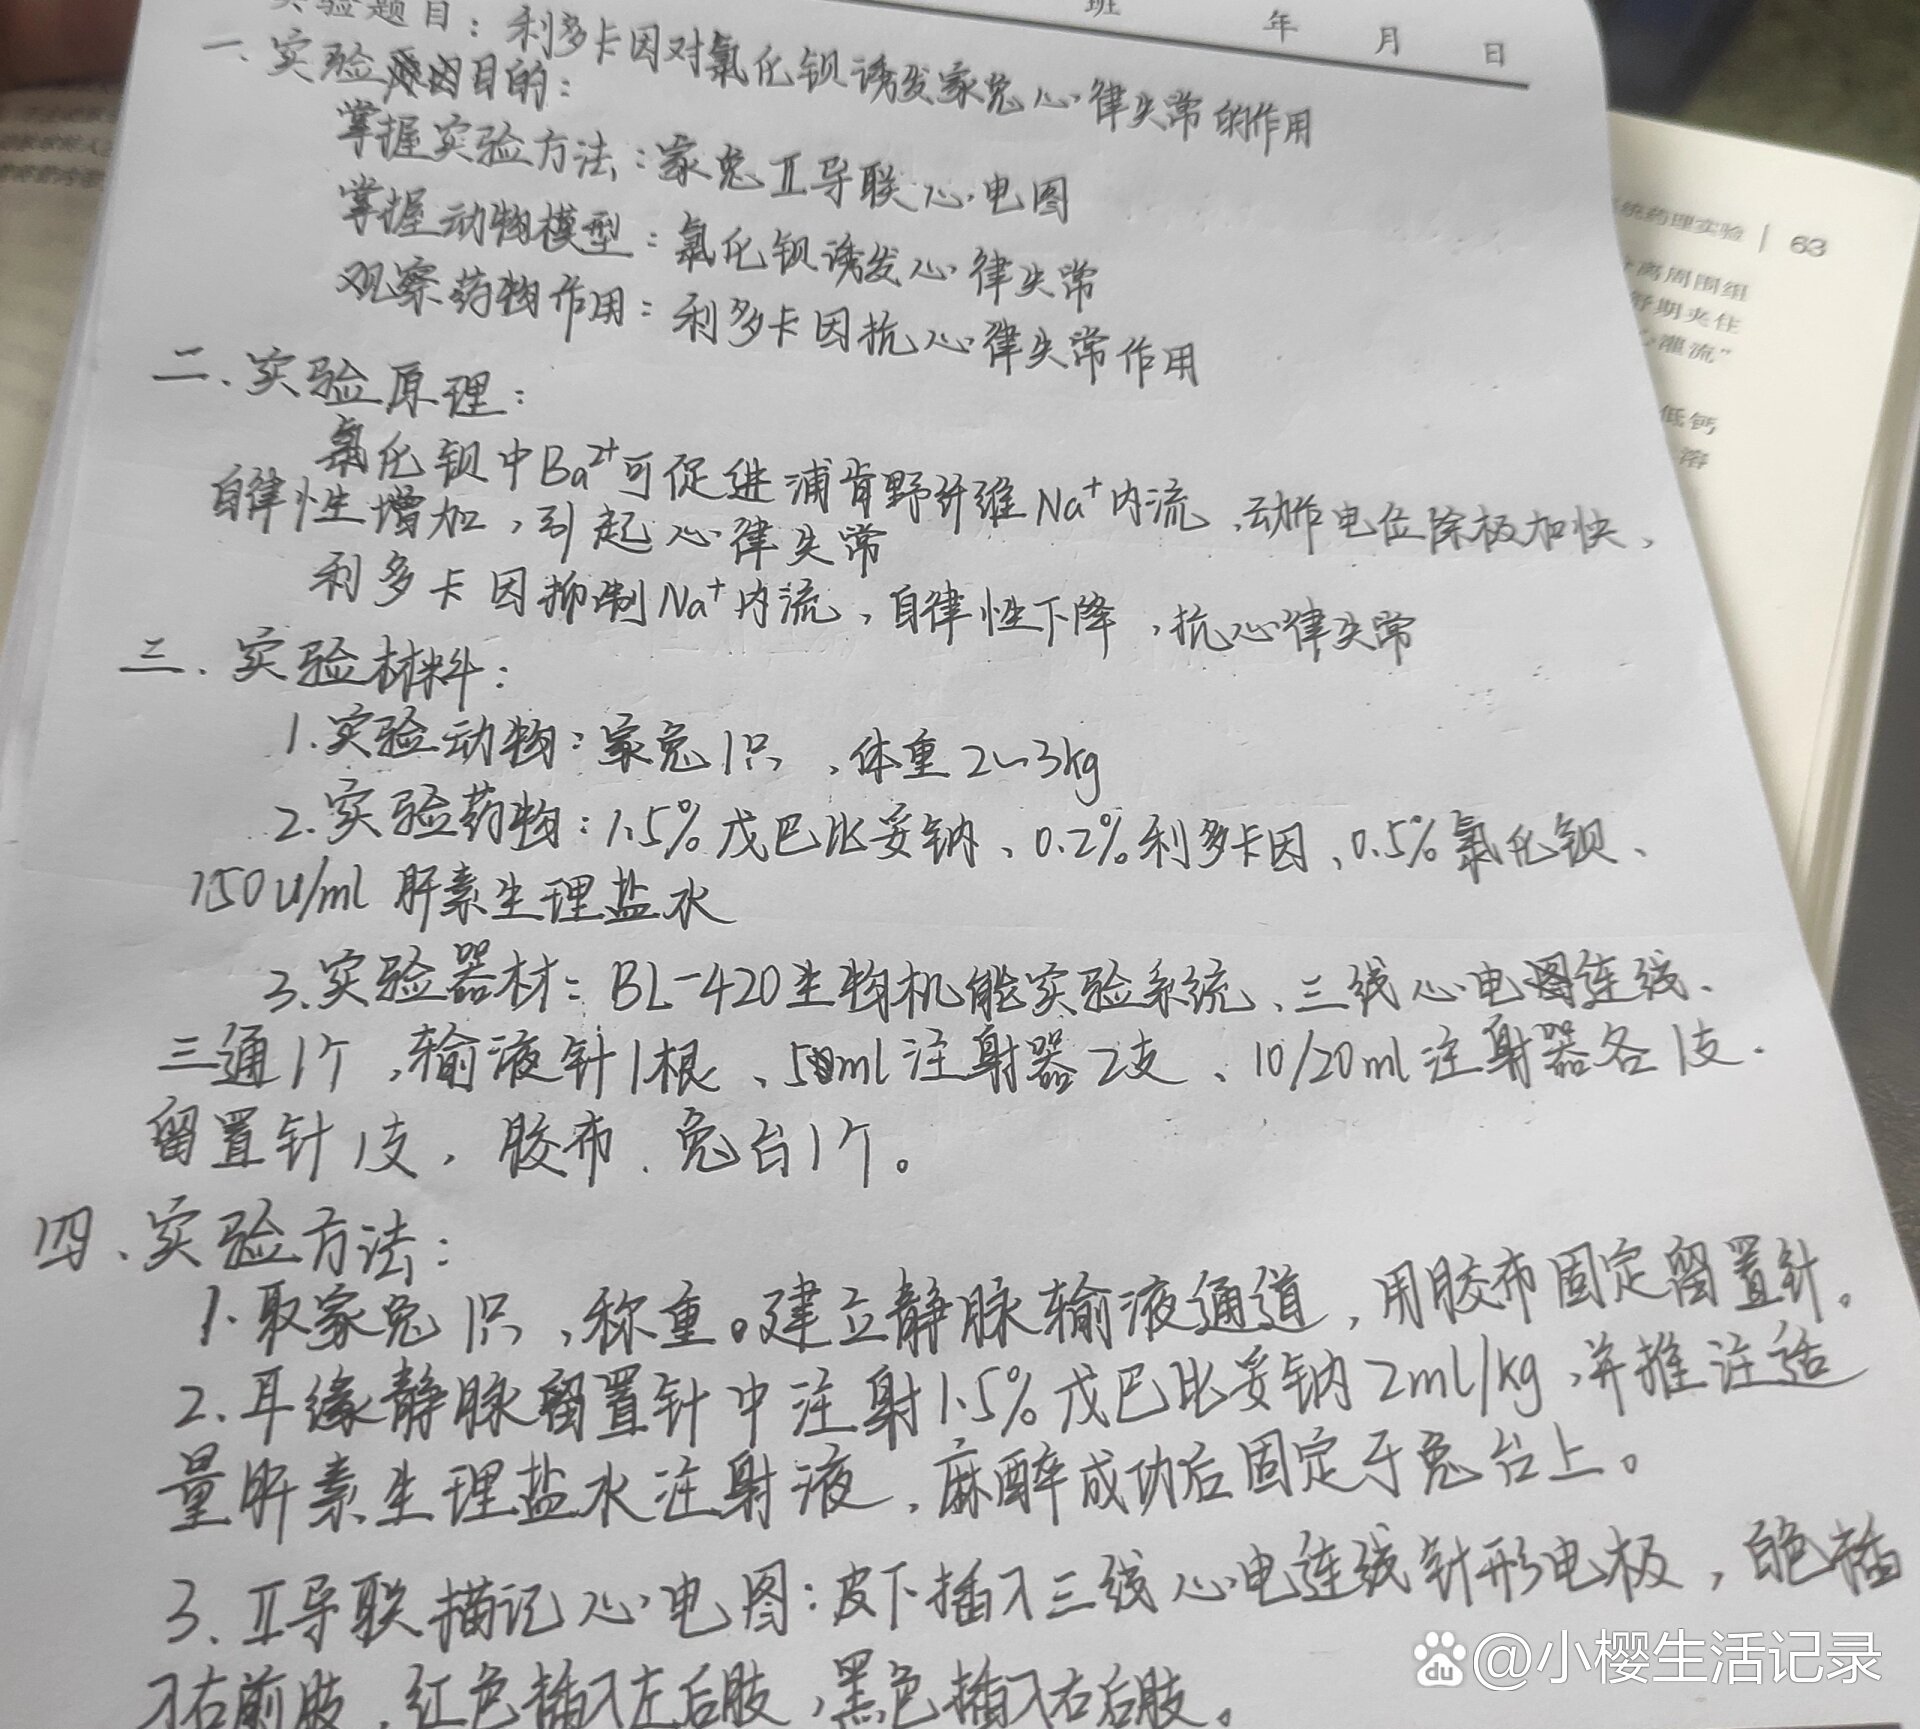 班 年 月 日
实验题目：利多卡因对氯化钡诱发家兔心律失常的作用
一、实验目的：
掌握实验方法：家兔Ⅱ导联心电图
掌握动物模型：氯化钡诱发心律失常
观察药物作用：利多卡因抗心律失常作用
二、实验原理：
氯化钡中Ba²⁺可促进浦肯野纤维Na⁺内流，动作电位除极加快、
自律性增加，引起心律失常
利多卡因抑制Na⁺内流，自律性下降，抗心律失常
三、实验材料：
1.实验动物：家兔1只，体重2~3kg
2.实验药物：1.5%戊巴比妥钠、0.2%利多卡因、0.5%氯化钡、
150U/ml肝素生理盐水
3.实验器材：BL-420生物机能实验系统、三线心电图连线、
三通1个，输液针1根、5ml注射器2支、10/20ml注射器各1支、
留置针1支，胶布、兔台1个。
四、实验方法：
1.取家兔1只，称重。建立静脉输液通道，用胶布固定留置针。
2.耳缘静脉留置针中注射1.5%戊巴比妥钠2ml/kg，并推注适
量肝素生理盐水注射液，麻醉成功后固定于兔台上。
3.Ⅱ导联描记心电图：皮下插入三线心电连线针形电极，白色插
入右前肢，红色插入左后肢，黑色插入右后肢。
统药理实验 | 63
离周围组
舒期夹住
灌流”
低钙
溶
Bai du @小樱生活记录